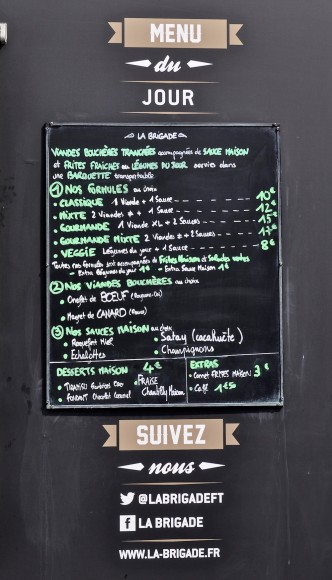 MENU
du
JOUR
LA BRIGADE
VIANDES BOUCHÈRES TRANCHÉES accompagnées de SAUCE MAISON
et FRITES FRAÎCHES ou LÉGUMES DU JOUR servies dans
une BARQUETTE transportable
① NOS FORMULES au choix
• CLASSIQUE 1 Viande + 1 Sauce 10€
• MIXTE 2 Viandes * + 1 Sauce 12€
• GOURMANDE 1 Viande XL + 2 Sauces 15€
• GOURMANDE MIXTE 2 Viandes * + 2 Sauces 17€
• VEGGIE Légumes du jour + 1 Sauce 8€
Toutes nos formules sont accompagnées de Frites Maison et Salades vertes
- Extra Légumes du jour 1€ - Extra Sauce Maison 1€
② NOS VIANDES BOUCHÈRES au choix
• Onglet de BOEUF
• Magret de CANARD
③ NOS SAUCES MAISON au choix
• Roquefort Miel
• Satay (cacahuète)
• Echalottes
• Champignons
DESSERTS MAISON 4€
• TIRAMISU
• FONDANT Chocolat Caramel
• FRAISE
Chantilly Maison
EXTRAS
• Cornet FRITES MAISON 3€
• Café 1€50
SUIVEZ
nous
@LABRIGADEFT
LA BRIGADE
WWW.LA-BRIGADE.FR